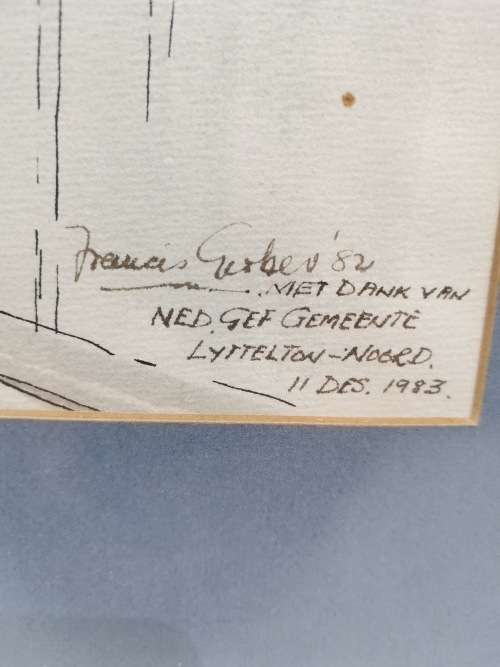 Francis Gerber '82
MET DANK VAN
NED. GEF GEMEENTE
LYTTELTON-NOORD.
11 DES. 1983.